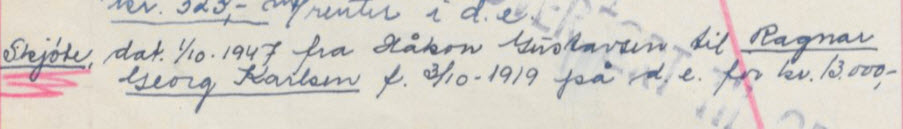 kr. 323,- m/renter i d.e.
Skjøte, dat. 1/10-1947 fra Håkon Gustavsen til Ragnar
Georg Karlsen f. 3/10-1919 på d.e. for kr. 13.000,-